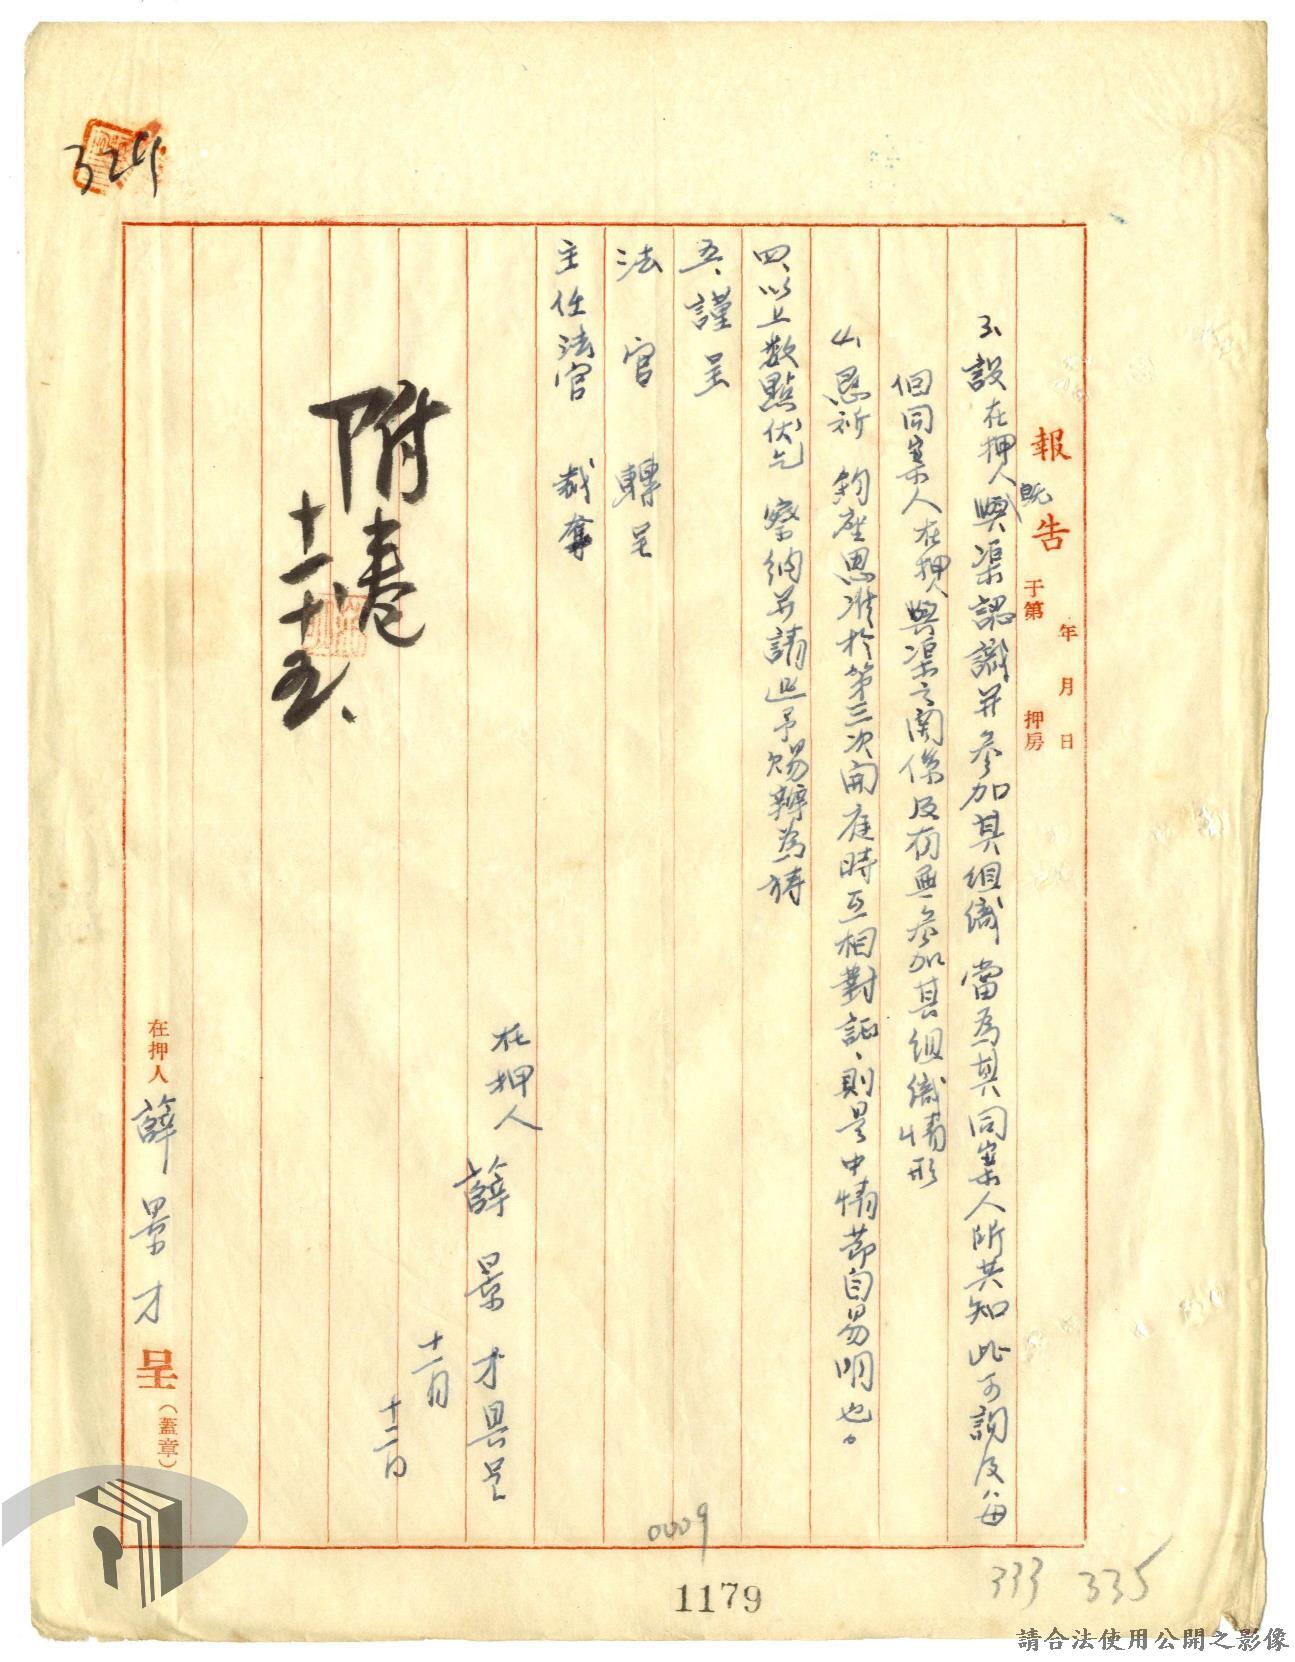 報告
年 月 日
于第 押房
3、設在押人既與渠認識并參加其組織當為其同案人所共知此可詢及每
個同案人在押人與渠之關係及有無參加其組織情形
4、恳祈 鈞座恩准於第三次開庭時互相對証、則是中情節自易明也。
四、以上数點伏乞 察納并請迅予賜辦為禱
五、謹呈
法官 轉呈
主任法官 裁奪
在押人 薛景才具呈
十一月
十二日
附卷
十一、十五、
在押人 薛景才 呈（蓋章）
324
0009
1179
333 335
請合法使用公開之影像